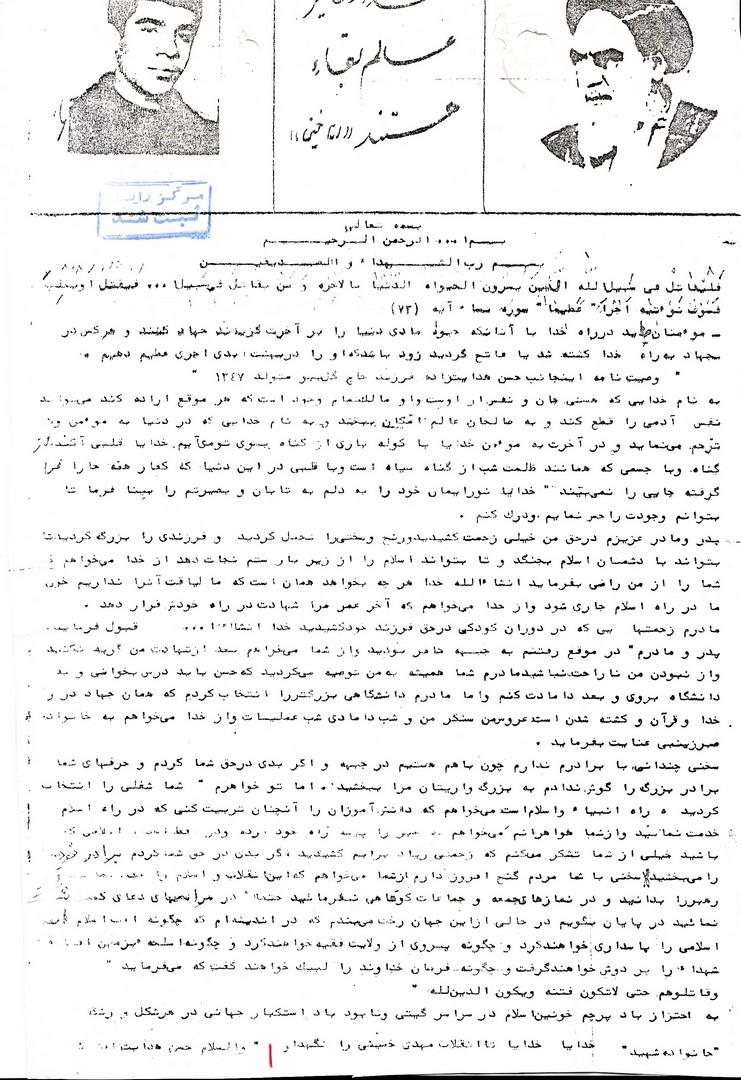 عالم بقاء
هستند ((امام خمینی))
مرکز رایا
ثبت شد
بسمه تعالی
بسم ا... الرحمن الرحیم
بسم رب الشهداء و الصدیقین
فلیقاتل فی سبیل الله الذین یشرون الحیوه الدنیا بالاخره و من یقاتل فی سبیل ا... فیقتل اویغلب
فسوف نوءتیه اجرا" عظیما" سوره نساء آیه (۷۳)
ـ موءمنان باید درراه خدا با آنانکه حیوة مادی دنیا را بر آخرت گزیدند جهاد کنند و هرکس در
جهاد به راه خدا کشته شد یا فاتح گردید زود باشد که او را در بهشت ابدی اجری عظیم دهیم .
" وصیت نامه اینجانب حسن هدایتزاده فرزند حاج گلمیر متولد ۱۳٤۷ "
به نام خدایی که هستی جان و نفس از اوست واو مالک تمام وجود است که هر موقع اراده کند می‌تواند
نفس آدمی را قطع کند و به صالحان عالم امکان ببخشد و به نام خدایی که در دنیا به موءمن و
ترحم می‌نماید و در آخرت به موءمن خدایا با کوله باری از گناه بسوی تو می‌آیم. خدایا قلبی آکنده از
گناه. وبا جسمی که همانند ظلمت شب از گناه سیاه است وبا قلبی در این دنیا که گناه همه جا را فرا
گرفته جایی را نمی‌بیند" " خدایا نور ایمان خود را به دلم به تابان و بصیرتم را بینا فرما تا
بتوانم وجودت را حس نمایم .ودرک کنم .
پدر ومادر عزیزم درحق من خیلی زحمت کشیدید ورنج وسختی را تحمل کردید و فرزندی را بزرگ کردید تا
بتواند با دشمنان اسلام بجنگد و تا بتواند اسلام را از زیر بار ستم نجات دهد از خدا می‌خواهم
شما را از من راضی بفرماید انشاءالله خدا هر چه بخواهد همان است که ما لیاقت آنرا نداریم خون
ما در راه اسلام جاری شود واز خدا می‌خواهم که آخر عمر مرا شهادت در راه خودش قرار دهد .
مادرم زحمتها یی که در دوران کودکی درحق فرزند خودکشیدید خدا انشاءا... قبول فرماید.
پدر و مادرم" در موقع رفتنم به جبهه حاضر بودید واز شما می‌خواهم بعد ازشهادت من گریه نکنید
واز نبودن من ناراحت نباشید مادرم شما همیشه به من توصیه می‌کردید که حسن باید درس بخوانی و به
دانشگاه بروی و بعد دامادت کنم واما مادرم دانشگاهی بزرگتر را انتخاب کردم که همان جهاد در راه
خدا و قرآن و کشته شدن است عروس من سنگر من و شب دامادی شب عملیات واز خدا می‌خواهم به خانواده
صبر زینبی عنایت بفرماید .
سخنی چندانی با برادرم ندارم چون باهم هستیم در جبهه و اگر بدی درحق شما کردم و حرفهای شما
برادر بزرگ را گوش ندادم به بزرگواریتان مرا ببخشید. اما تو خواهرم " شما شغلی را انتخاب
کردید ه راه انبیاء واسلام است می‌خواهم که دانش‌آموزان را آنچنان تربیت کنی که در راه اسلام
خدمت نمائید وازشما خواهرانم می‌خواهم که صبر را پیشه راه خود کرده
باشید خیلی از شما تشکر می‌کنم که زحمتی زیاد برایم کشیدید اگر بدی در حق شما کردم برادر خود
را می‌بخشید سخنی با شما مردم گنج افروز دارم ازشما می‌خواهم که این انقلاب و اسلام را
رهبر را بدانید و در نمازهای جمعه و جماعات کوتاهی نفرمائید حتما" در مراسمهای دعای کمیل شرکت
نمائید در پایان بگویم در حالی ازاین جهان رخت می‌بندم که در اندیشه‌ام که چگونه امت اسلام
اسلامی را پاسداری خواهند کرد و چگونه پیروی از ولایت فقیه خواهند کرد و چگونه اسلحه بزمین افتاده
شهداء را بر دوش خواهند گرفت و چگونه فرمان خداوند را لبیک خواهند گفت که می‌فرماید "
وقاتلوهم حتی لاتکون فتنه ویکون الدین لله "
به احتزاز باد پرچم خونین اسلام در سراسر گیتی ونابود باد استکبار جهانی در هرشکل و رنگ
خدایا خدایا تا انقلاب مهدی خمینی را نگهدار " والسلام حسن هدایتزاده
"خانواده شهید"